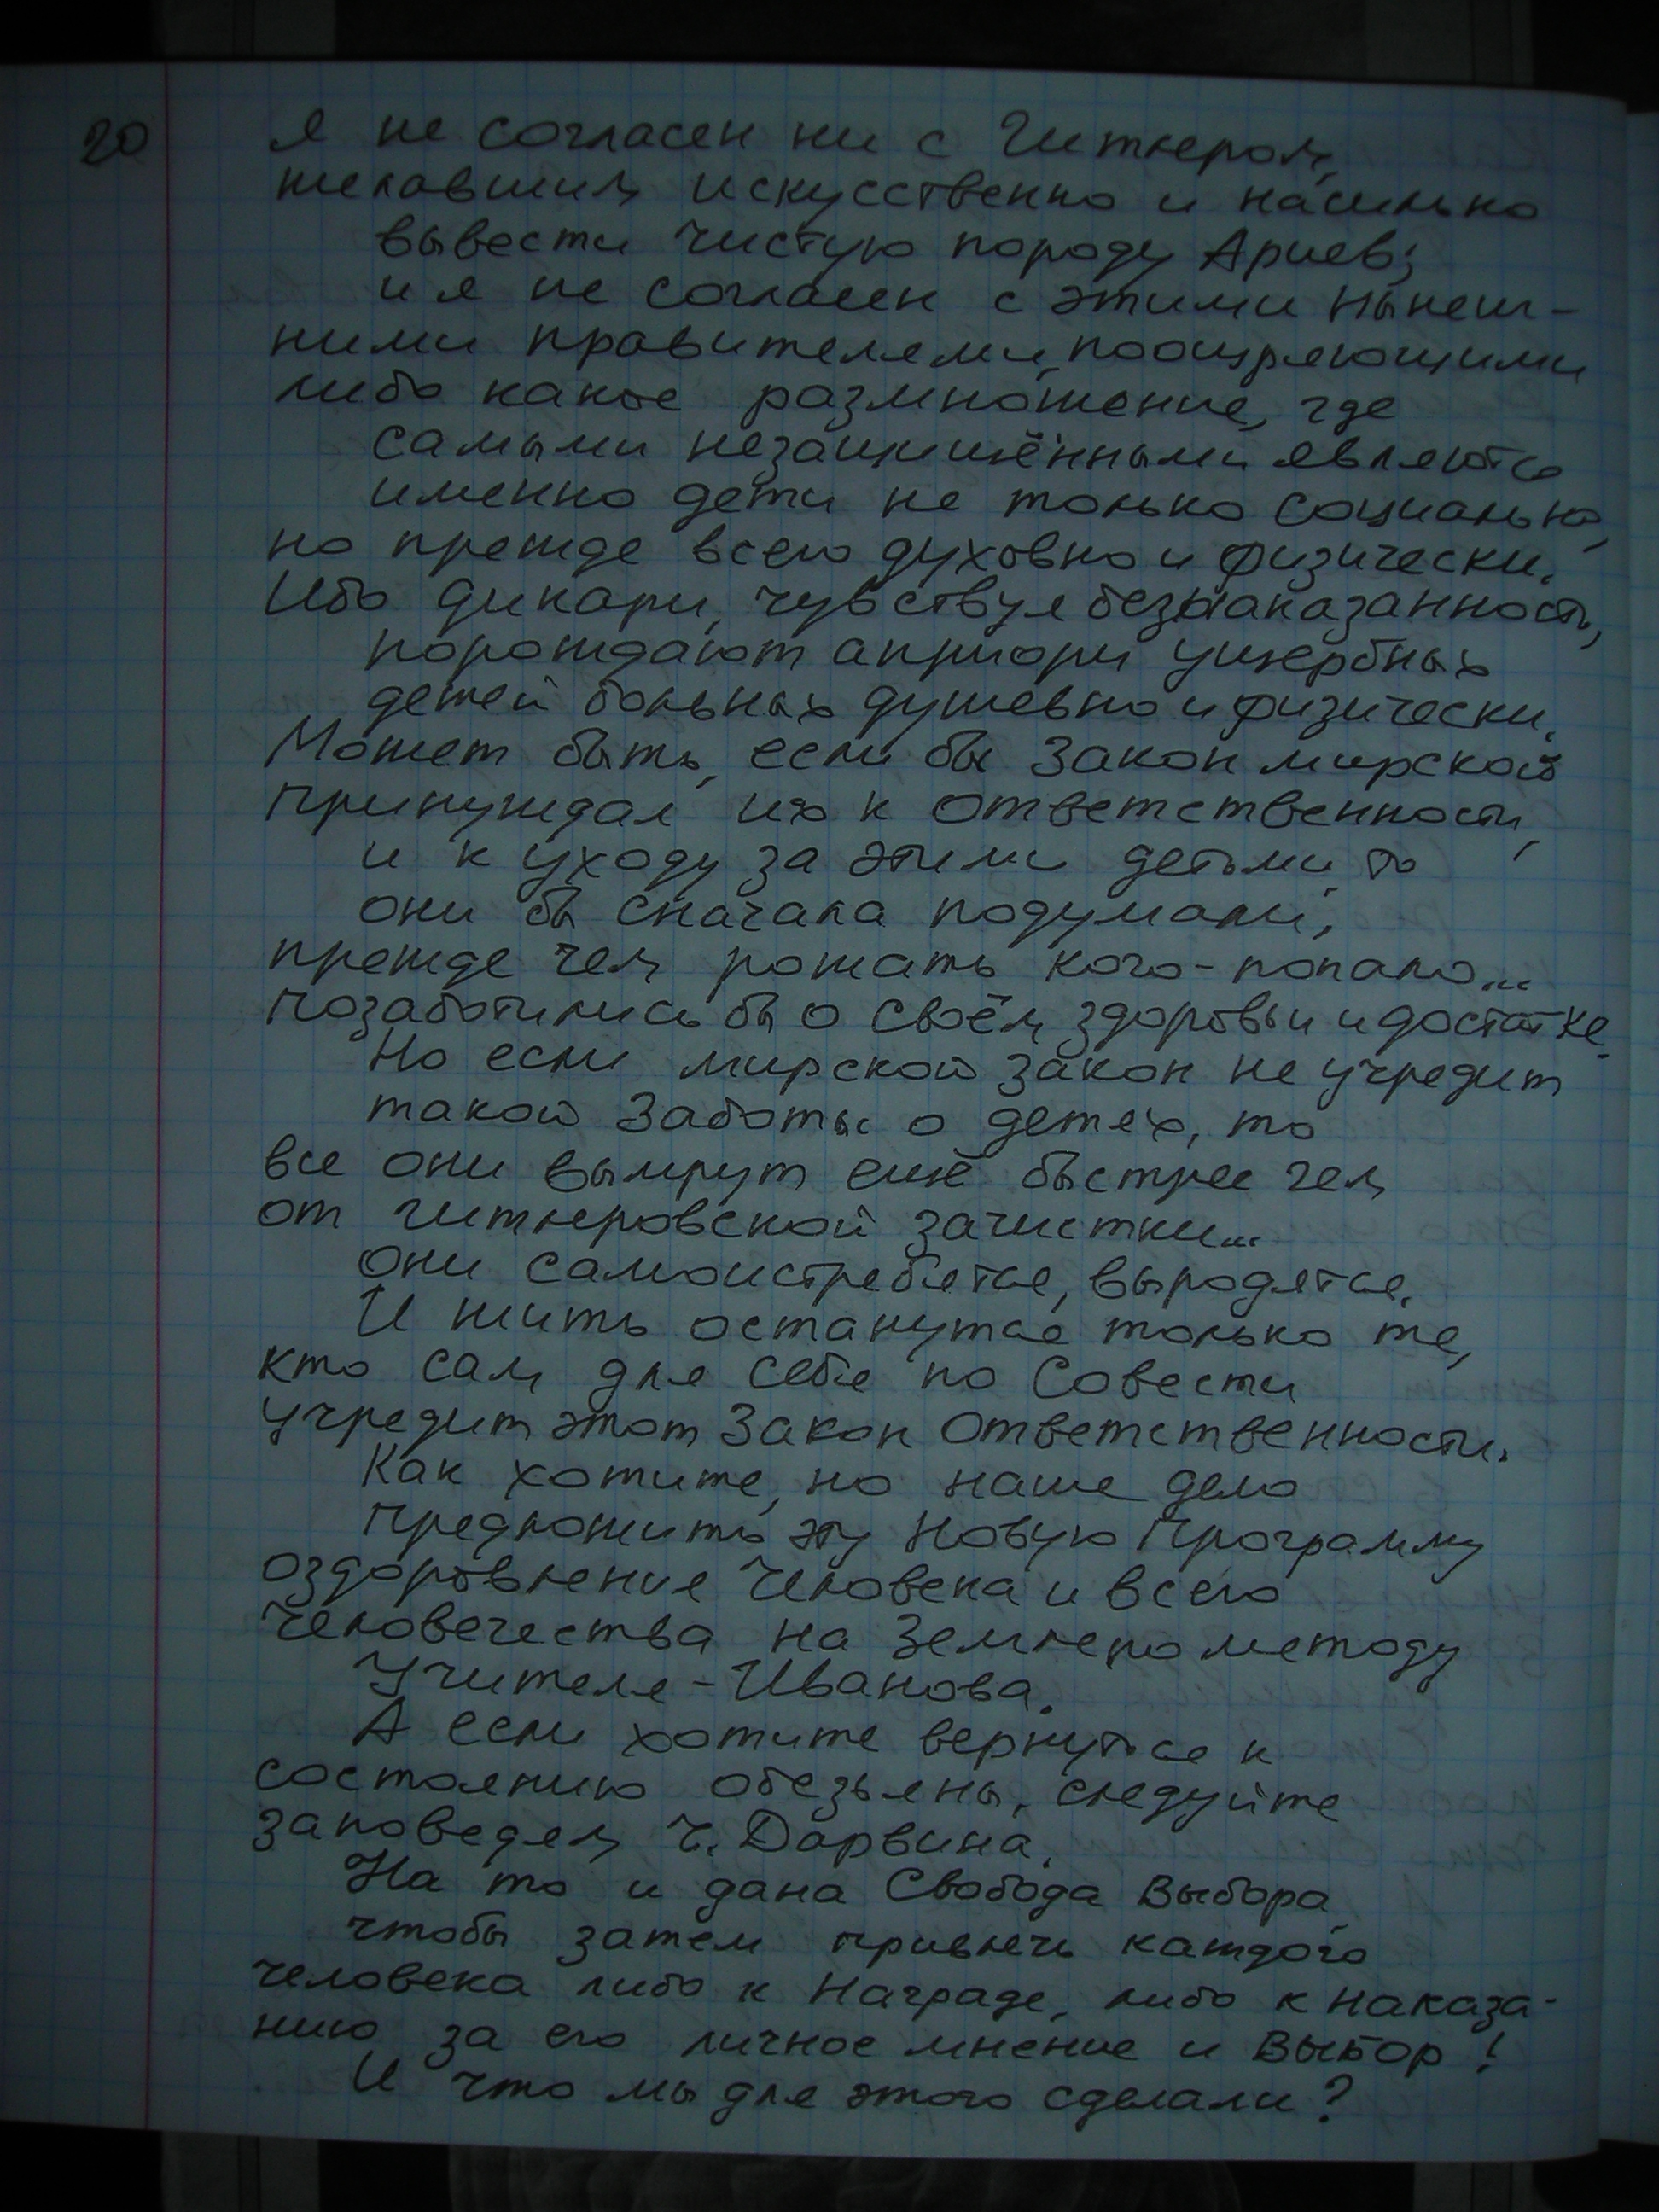 20
Я не согласен ни с Гитлером,
желавшим искусственно и насильно
вывести чистую породу Ариев;
и я не согласен с этими нынеш-
ними правителями, поощряющими
либо какое размножение, где
самыми незащищёнными являются
именно дети не только социально,
но прежде всего духовно и физически.
Ибо дикари, чувствуя безнаказанность,
порождают априори ущербных
детей больных душевно и физически.
Может быть, если бы Закон мирской
принуждал их к ответственности,
и к уходу за этими детьми, то
они бы сначала подумали,
прежде чем рожать кого-попало...
позаботились бы о своём здоровьи и достатке.
Но если мирской закон не учредит
такой Заботы о детях, то
все они вымрут ещё быстрее чем
от гитлеровской зачистки...
они самоистребятся, выродятся.
И жить останутся только те,
кто сам для себя по Совести
учредит этот Закон Ответственности.
Как хотите, но наше дело
предложить эту Новую Программу
оздоровления Человека и всего
человечества на Земле по методу
Учителя-Иванова.
А если хотите вернуться к
состоянию обезьяны, следуйте
заповедям Ч. Дарвина.
На то и дана Свобода Выбора,
чтобы затем привлечь каждого
человека либо к Награде, либо к наказа-
нию за его личное мнение и Выбор!
И что мы для этого сделали?